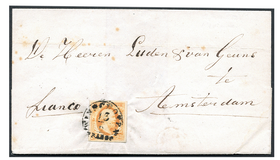 De Heeren Luden & van Geuns
te
franco Amsterdam
FRANCO